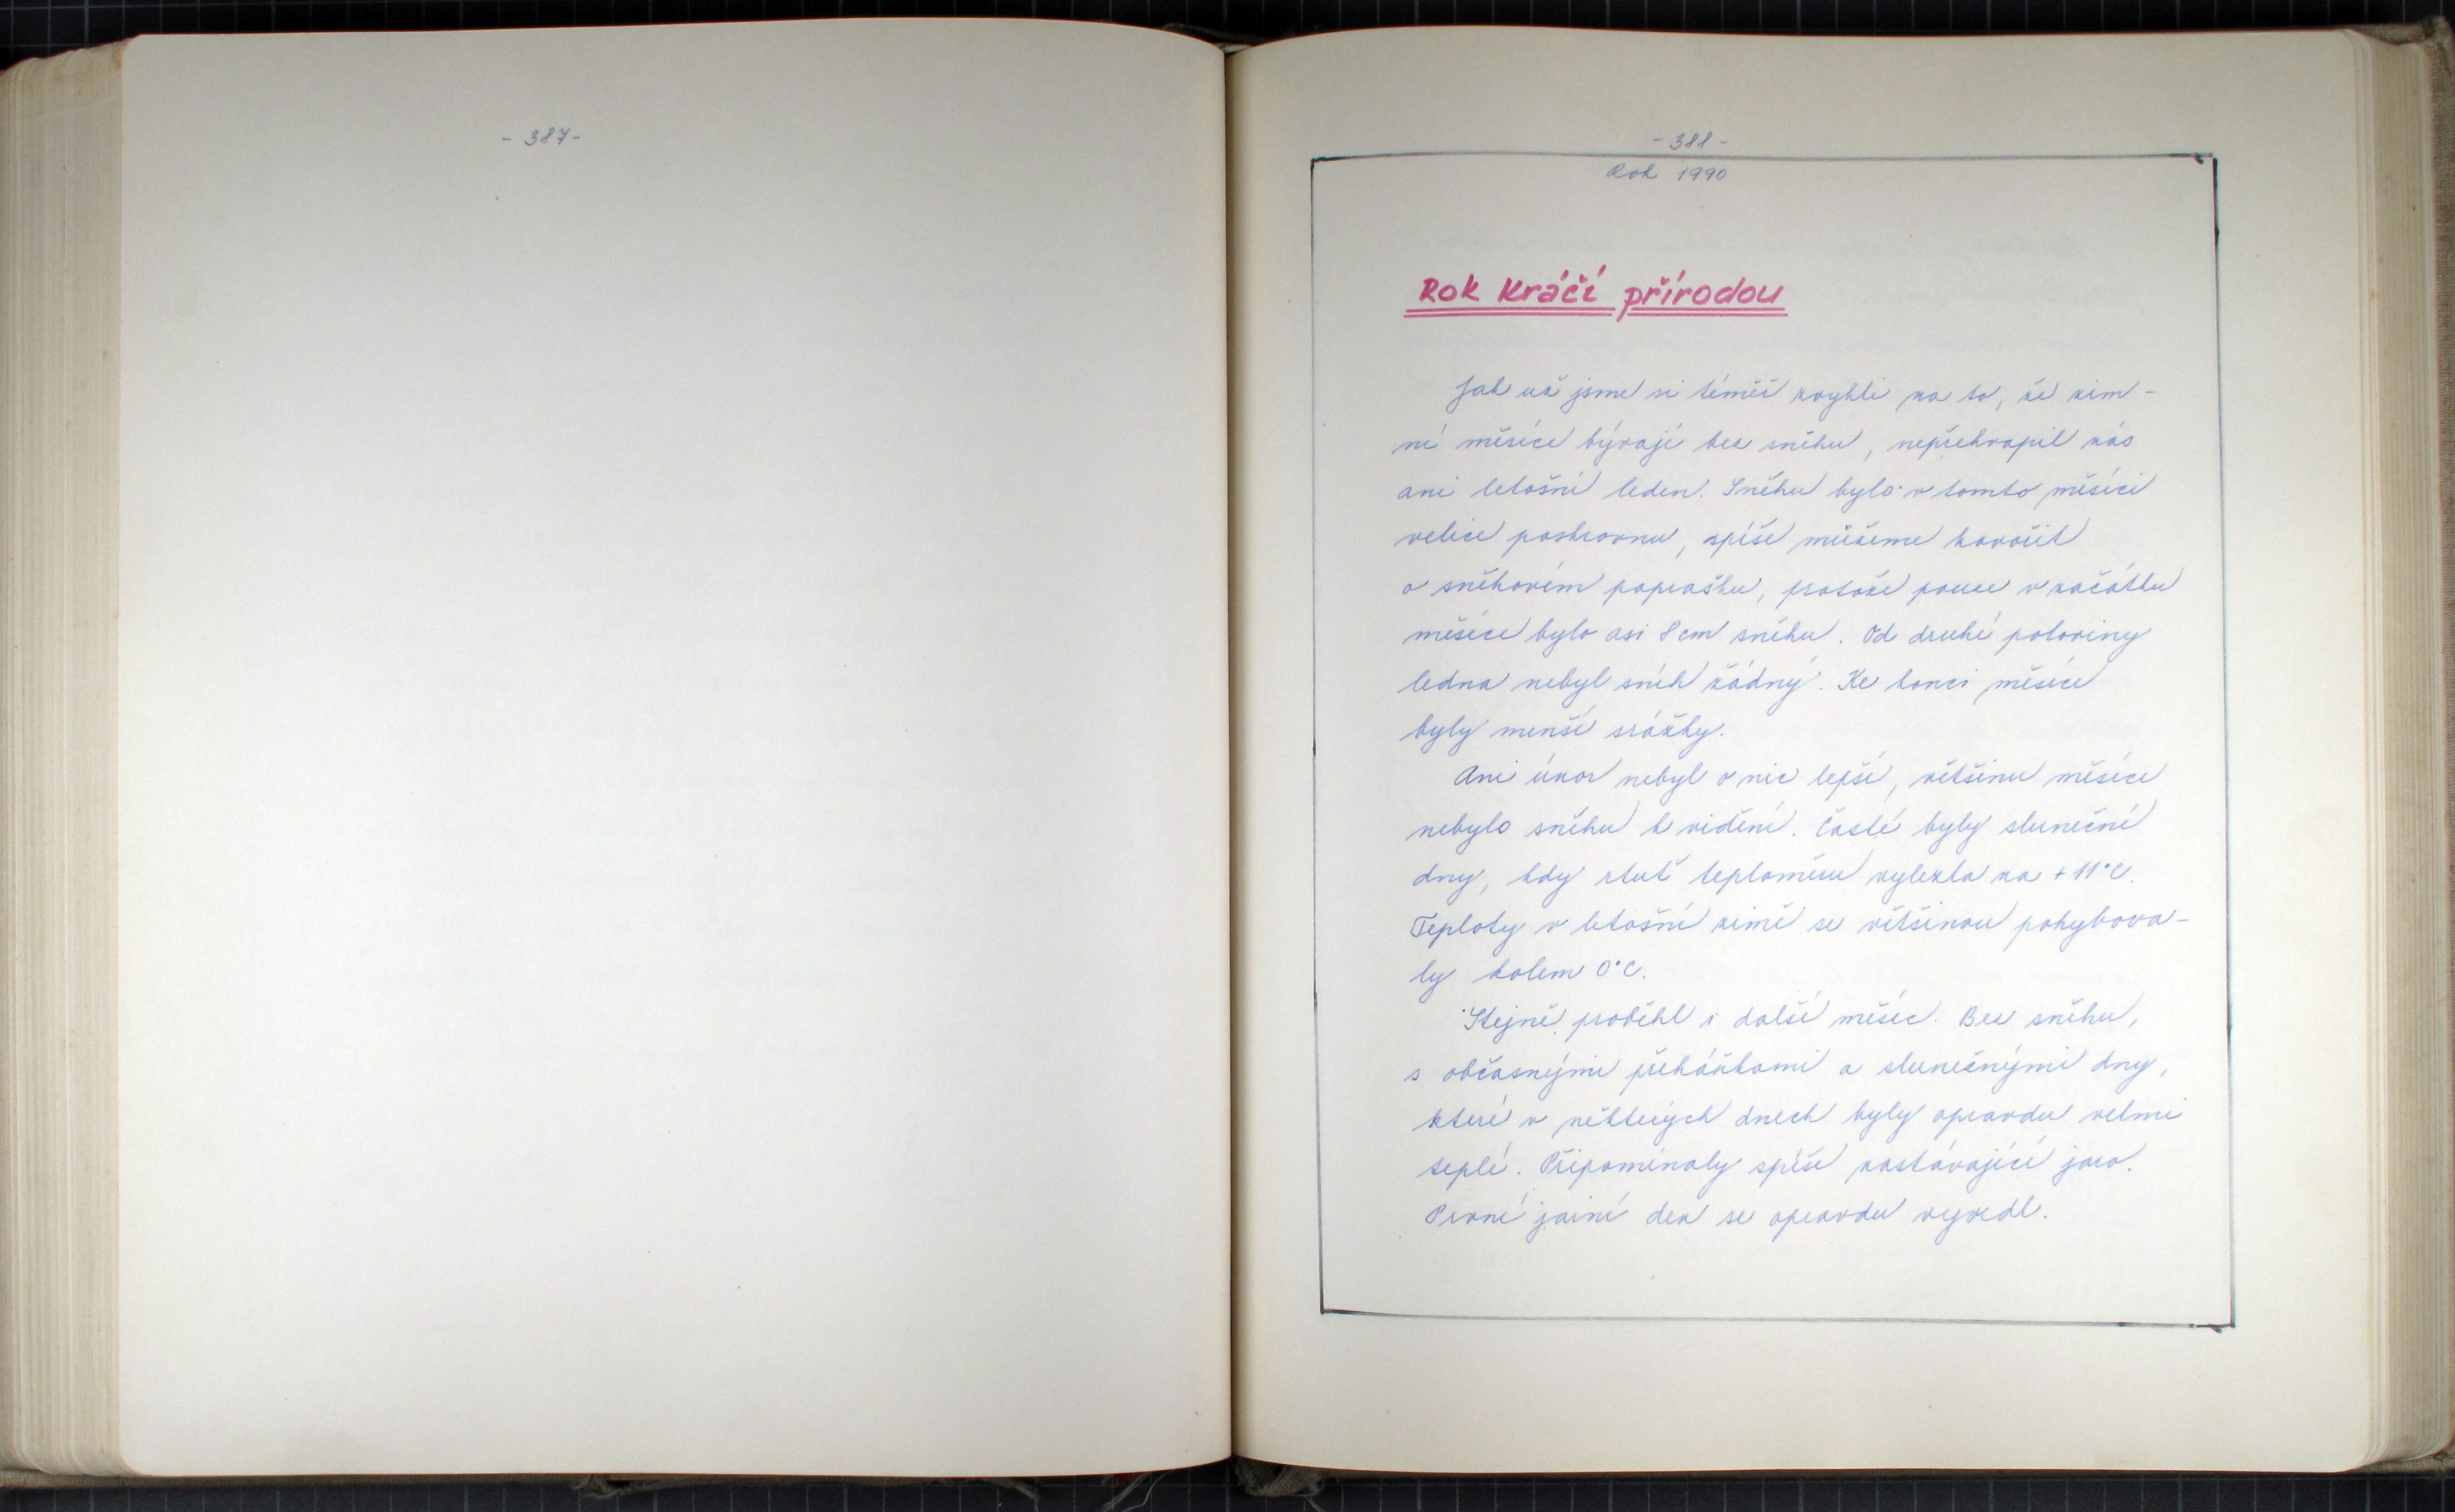 - 387 -
- 388 -
Rok 1990
Rok kráčí přírodou
Jak už jsme si téměř zvykli na to, že zim-
ní měsíce bývají bez sněhu, nepřekvapil nás
ani letošní leden. Sněhu bylo v tomto měsíci
velice poskrovnu, spíše můžeme hovořit
o sněhovém poprašku, protože pouze v začátku
měsíce bylo asi 8 cm sněhu. Od druhé poloviny
ledna nebyl sníh žádný. Ke konci měsíce
byly menší srážky.
Ani únor nebyl o nic lepší, většinu měsíce
nebylo sněhu k vidění. Časté byly slunečné
dny, kdy rtuť teploměru vylezla na + 11°C.
Teploty v letošní zimě se většinou pohybova-
ly kolem 0°C.
Stejně proběhl i další měsíc. Bez sněhu,
s občasnými přeháňkami a slunečnými dny,
které v některých dnech byly opravdu velmi
teplé. Připomínaly spíše nastávající jaro.
První jarní den se opravdu vyvedl.